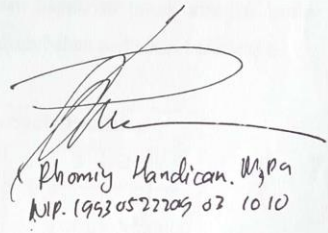 Rhomiy Handican. M,Pd
NIP. 19930522209 03 1010